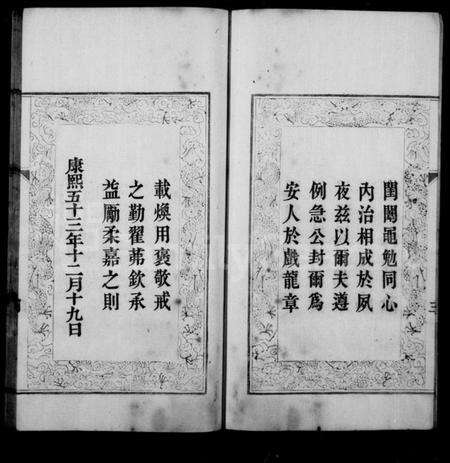 閨閫黽勉同心
內治相成於夙
夜兹以爾夫遵
例急公封爾為
安人於戲龍章
載煥用褒敬戒
之勤翟茀欽承
益勵柔嘉之則
康熙五十三年十二月十九日